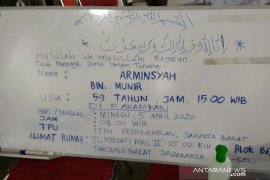 إنا لله وإنا إليه راجعون
Inna Lillahi We Inna Lillahi Rojeun
Telah Meninggal Dunia Dengan Tenang
Nama : ARMINSYAH
BIN. MUNIR
USIA : 59 TAHUN, JAM. 15 00 WIB
DI MAKAMKAN
HARI/TANGGAL : MINGGU 5 APRIL 2020
JAM : 08 00 WIB
TPU : TPU PEDONGKELAN, JAKARTA BARAT
ALAMAT RUMAH : JL MERPATI MAS II RT 02 RW
TANJUNG BARAT. JAGAKARSA
BLOK B6
ANTARANEWS